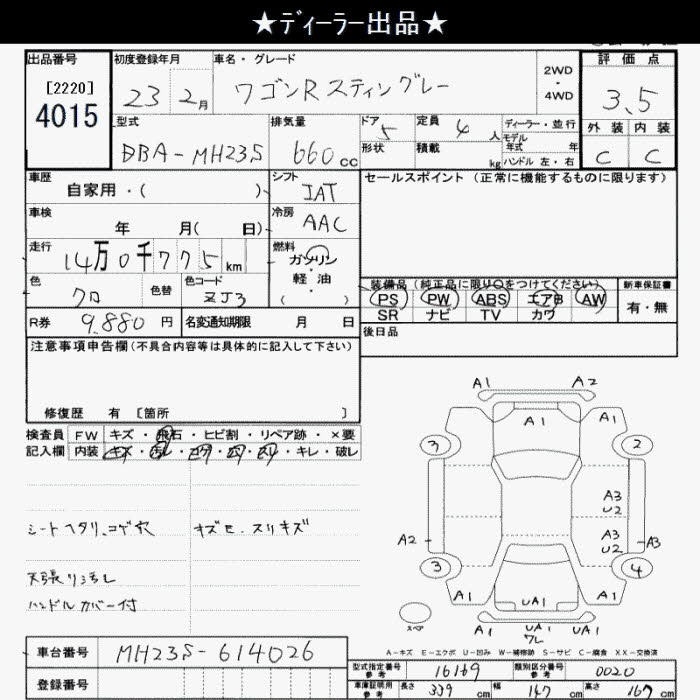 ★ディーラー出品★
出品番号 初度登録年月 車名・グレード 評価点
[2220] 23 2月 ワゴンR スティングレー 2WD・4WD 3.5
4015 型式 排気量 ドア 5 定員 4人 ディーラー・並行 外装 内装
DBA-MH23S 660cc 形状 積載 kg モデル年式 年 ハンドル 左・右 C C
車歴 シフト セールスポイント (正常に機能するものに限ります)
自家用・( ) IAT
車検 冷房
年 月( 日) AAC
走行 燃料
14万0千775km ガソリン
軽油
色 色替 色コード ( ) 装備品 (純正品に限り○をつけてください) 新車保証書
クロ ZJ3 PS PW ABS エアB AW 有・無
SR ナビ TV カワ
R券 9,880円 名変通知期限 月 日 後日品
注意事項申告欄(不具合内容等は具体的に記入して下さい)
修復歴 有 〔箇所 〕
検査員 FW キズ・飛石・ヒビ割・リペア跡・×要
記入欄 内装 キズ・汚レ・コゲ・穴・スリ・キレ・破レ
シートヘタリ、コゲ穴 キズセ、スリキズ
天張リ汚レ
ハンドルカバー付
A1 A2
A1 A1
3 2
A3
U2
A2 A3 A3
U2
3 4
A1 A1
UA1
スペア A1 UA1 UA1
ワレ
A-キズ E-エクボ U-凹み W-補修跡 S-サビ C-腐食 XX-交換済
車台番号 MH23S-614026
型式指定番号 参考 16169 類別区分番号 参考 0020
登録番号 車庫証明用 参考 長さ 339cm 幅 147cm 高さ 167cm